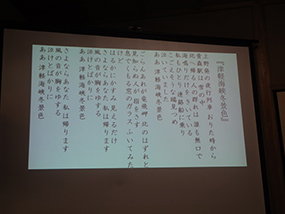 『津軽海峡冬景色』
上野発の夜行列車 おりた時から
青森駅は 雪の中
北へ帰る人の群れは 誰も無口で
海鳴りだけを きいている
私もひとり 連絡船に乗り
こごえそうな鴎見つめ
泣いていました
ああ 津軽海峡冬景色
ごらんあれが 竜飛岬 北のはずれと
見知らぬ人が 指をさす
息でくもる窓のガラス ふいてみた
けど
はるかにかすみ 見えるだけ
さよならあなた 私は帰ります
風の音が胸をゆする
泣けとばかりに
ああ 津軽海峡冬景色
さよならあなた 私は帰ります
風の音が胸をゆする
泣けとばかりに
ああ 津軽海峡冬景色